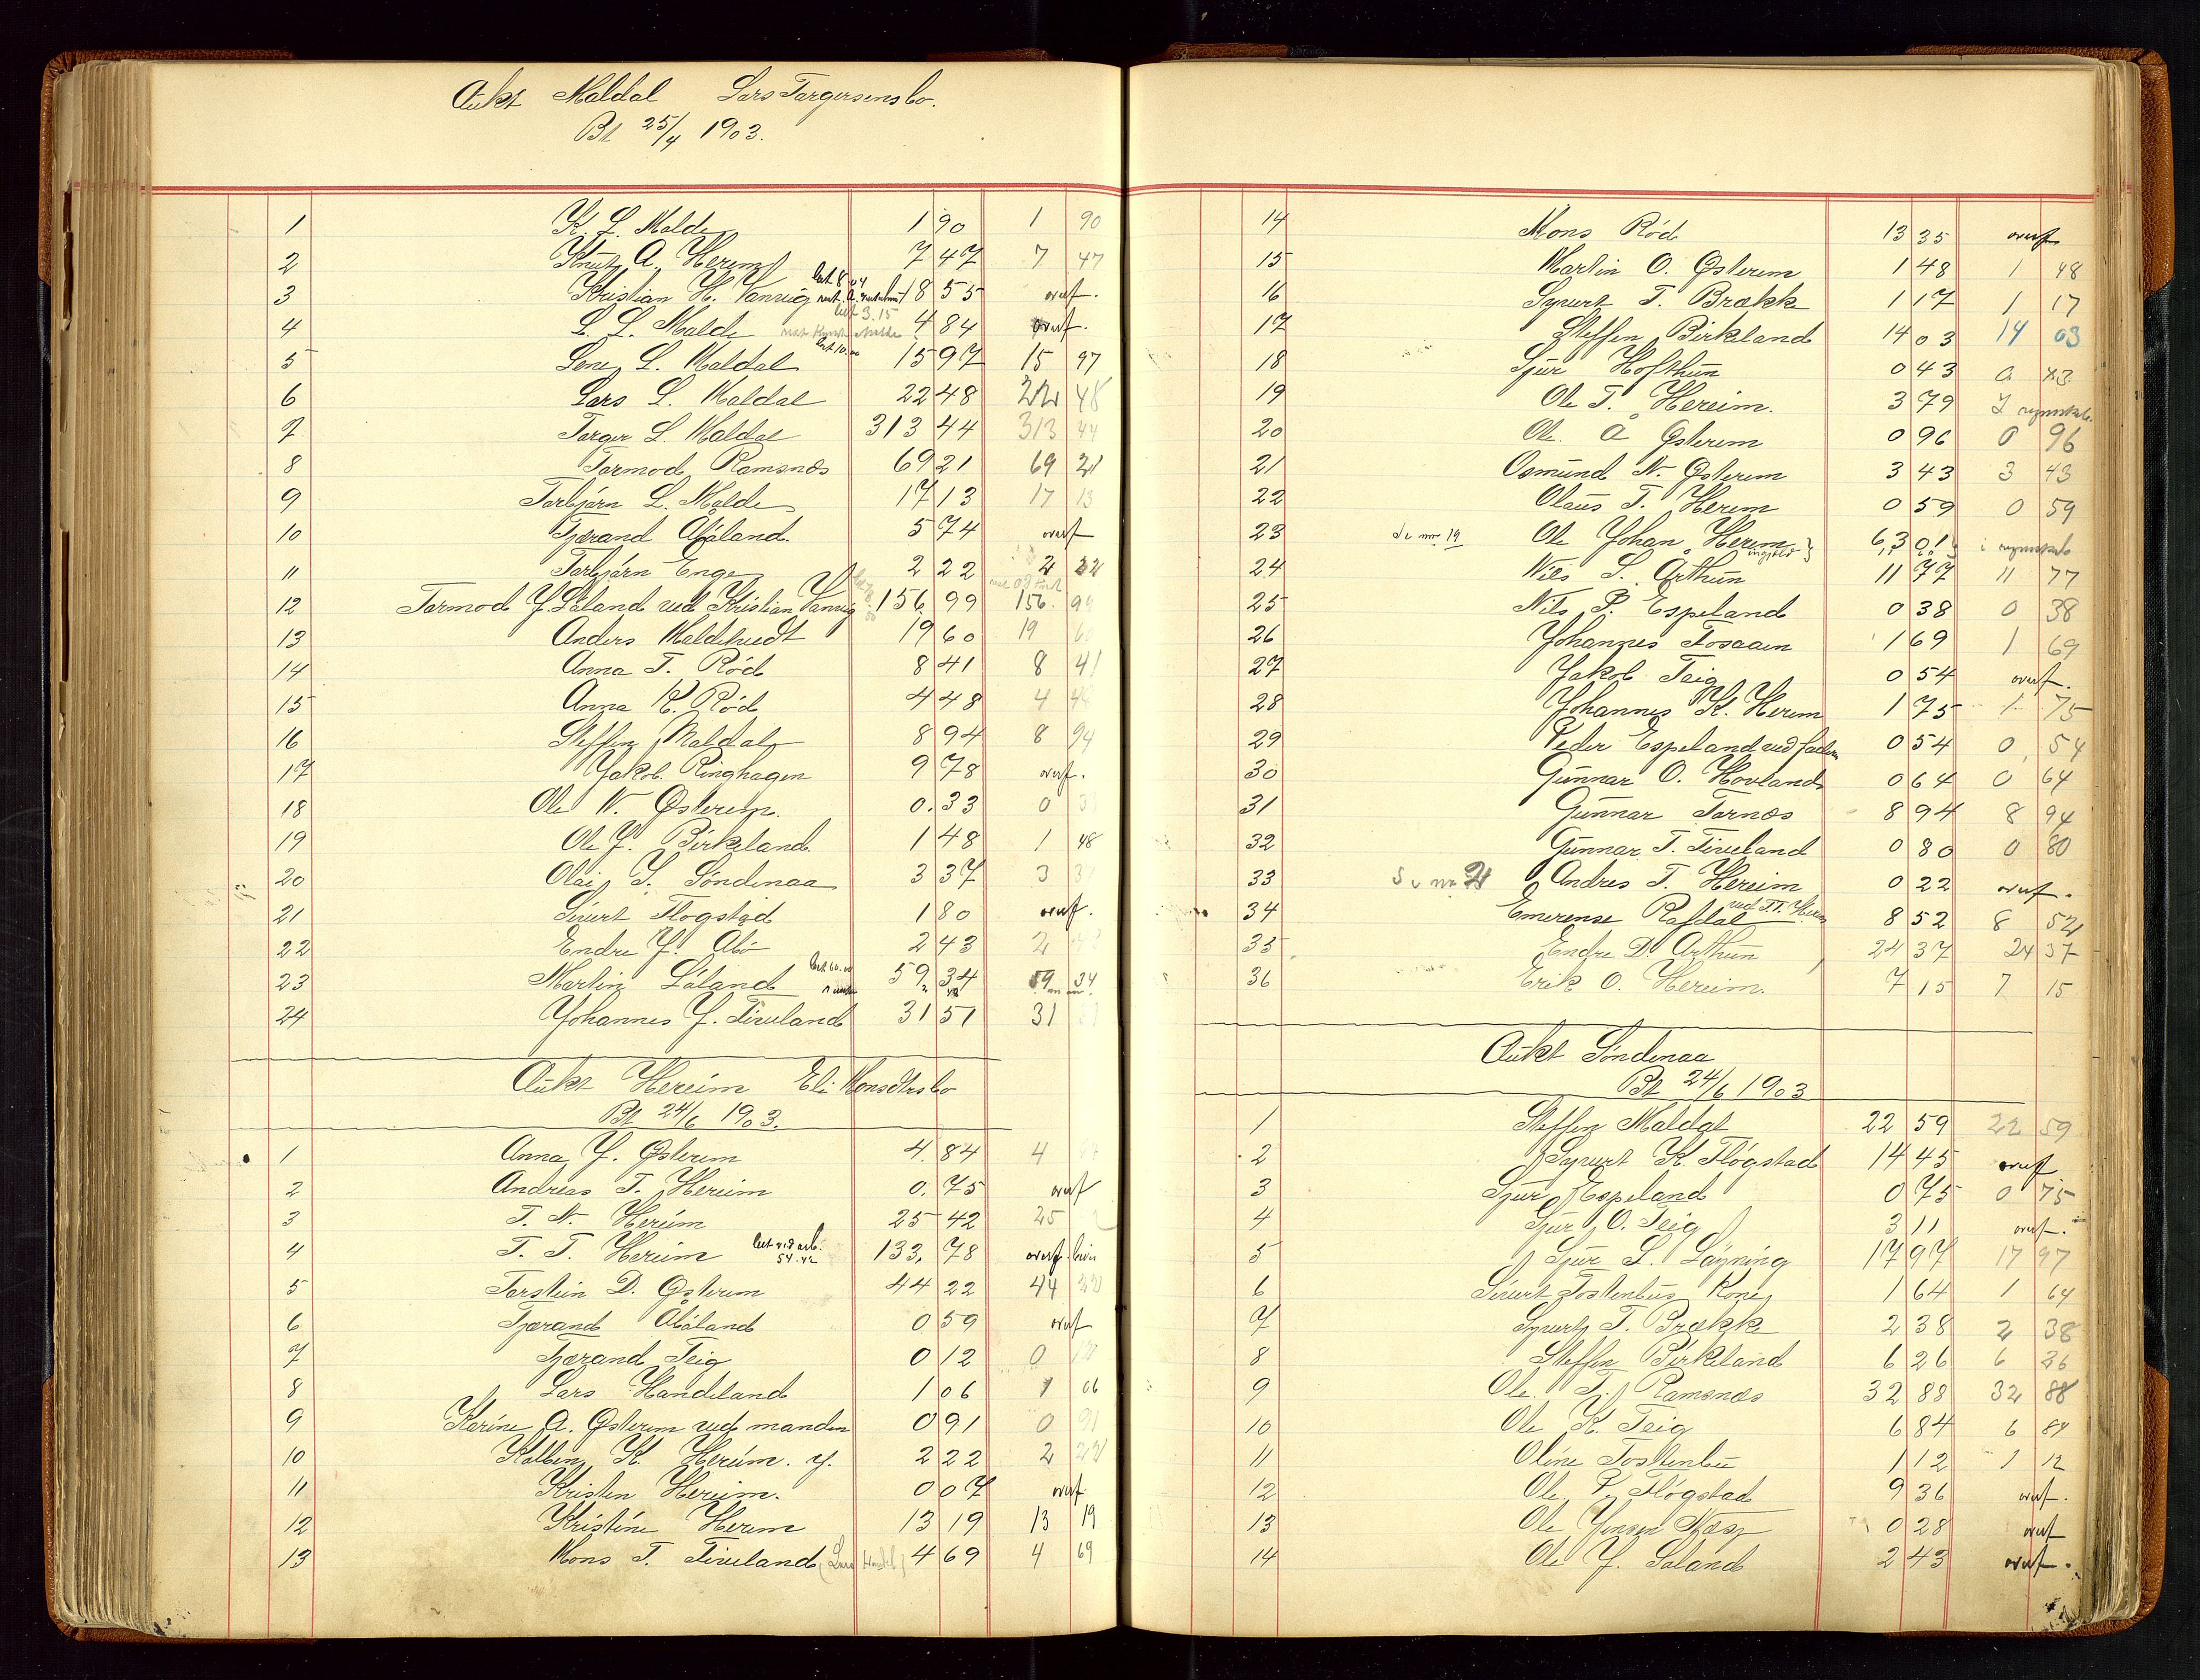 Aukt Maldal Lars Targersens bo.
Bt 25/4 1903.
1 K. L. Malde 1 90 1 90
2 Knut A. Hereim 7 47 7 47
3 Kristian H. Vanvig 18 55 overf.
4 L. L. Malde 4 84 overf.
5 Lene L. Maldal 15 97 15 97
6 Lars L. Maldal 22 48 22 48
7 Targer L. Maldal 313 44 313 44
8 Tormod Ramsnæs 69 21 69 21
9 Torbjörn L. Malde 17 13 17 13
10 Tjærand Åböland. 5 74 overf
11 Torbjörn Enge 2 22 2 22
12 Tormod J. Laland ved Kristian Vanvig 156. 99 156. 99
13 Anders Maldetvedt 19 60 19 60
14 Anna T. Röd 8 41 8 41
15 Anna K. Röd 4 48 4 48
16 Steffen Maldal 8 94 8 94
17 Jakob Ringhagen 9 78 overf.
18 Ole N. Østereim. 0. 33 0 33
19 Ole J. Birkeland 1 48 1 48
20 Olai S. Söndenaa 3 37 3 37
21 Sivert Flogstad 1 80 overf.
22 Endre J. Abö 2 43 2
23 Martin Laland 59 34 59 34
24 Johannes J. Tiveland 31 51 31
Aukt Hereim Eli Monsdtrs bo
Bt 24/6 1903.
1 Anna J. Østereim 4. 84 4
2 Andreas T. Hereim 0. 75 overf
3 T. N. Hereim 25 42 25
4 T. T. Hereim 133. 78 overf.
5 Torstein D. Østereim 44 22 44 22
6 Tjærand Åböland 0 59 overf
7 Tjærand Teig 0 12 0 12
8 Lars Handeland 1 06 1 06
9 Karine A. Østereim ved manden 0 91 0 91
10 Kolben K. Hereim. y. 2 22 2 22
11 Kristen Hereim. 0 07 overf
12 Kristine Hereim 13 19 13 19
13 Mons T. Tiveland 4 69 4 69
14 Mons Röd 13 35 overf
15 Martin O. Østereim 1 48 1 48
16 Syvert T. Brækk 1 17 1 17
17 Steffen Birkeland 14 03 14 03
18 Sjur Hofthun 0 43 0 43
19 Ole T. Hereim. 3 79
20 Ole Å Østereim 0 96 0 96
21 Osmund N. Østereim 3 43 3 43
22 Olaus T. Hereim 0 59 0 59
23 Se nr 19 Ole Johan Hereim 6, 30
24 Nils S. Årthun 11 77 11 77
25 Nils P. Espeland 0 38 0 38
26 Johannes Fosaaen 1 69 1 69
27 Jakob Teig 0 54 overf.
28 Johannes K. Hereim 1 75 1 75
29 Peder Espeland ved faderen 0 54 0 54
30 Gunnar O. Hovland 0 64 0 64
31 Gunnar Tornæs 8 94 8 94
32 Gunnar T. Tiveland 0 80 0 80
33 Se nr 2 Andres T. Hereim 0 22 overf.
34 Emerense Rafdal ved T. T. Hereim 8 52 8 52
35 Endre D. Arthun 24 37 24 37
36 Erik O. Hereim. 7 15 7 15
Aukt Söndenaa
Bt 24/6 1903
1 Steffen Maldal 22 59 22 59
2 Syvert K. Flögstad 14 45 overf
3 Sjur Espeland 0 75 0 75
4 Sjur O. Teig 3 11 overf.
5 Sjur L. Löyning 17 97 17 97
6 Sivert Tostenbus Kone 1 64 1 64
7 Syvert T. Brække 2 38 2 38
8 Steffen Birkeland 6 26 6 26
9 Ole Tj. Ramsnæs 32 88 32 88
10 Ole K. Teig 6 84 6 84
11 Oline Tostenbu 1 12 1 12
12 Ole P. Flögstad 9 36 overf.
13 Ole Jensen Næss 0 28 overf
14 Ole J. Laland 2 43 overf.